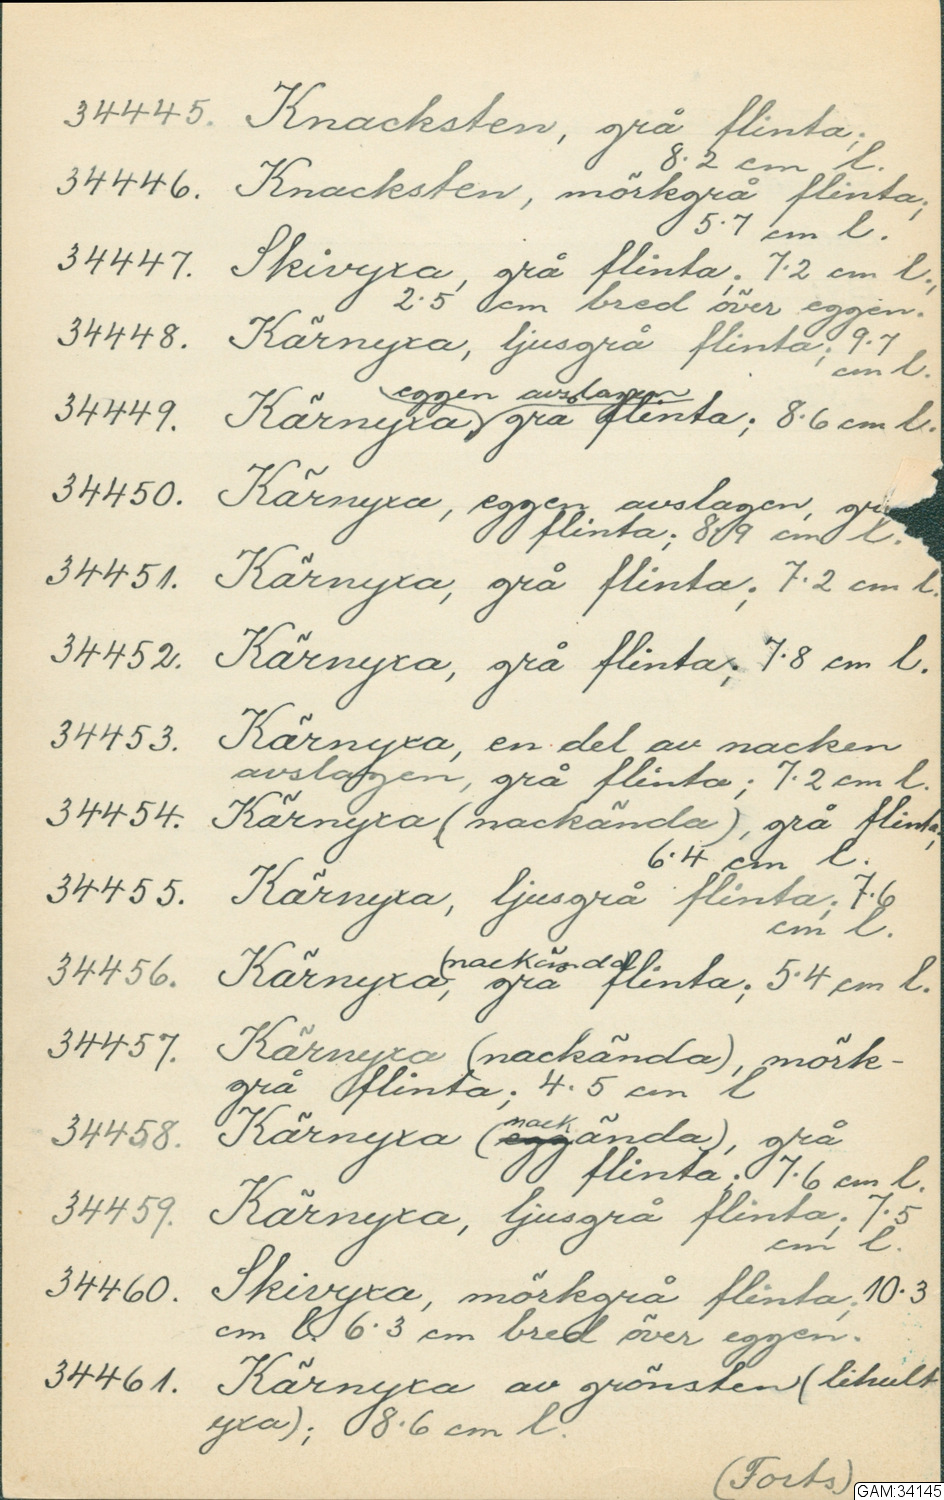 34445. Knacksten, grå flinta;
8.2 cm l.
34446. Knacksten, mörkgrå flinta;
5.7 cm l.
34447. Skivyxa, grå flinta; 7.2 cm l.,
2.5 cm bred över eggen.
34448. Kärnyxa, ljusgrå flinta; 9.7
cm l.
eggen avslagen
34449. Kärnyxa, grå flinta; 8.6 cm l.
34450. Kärnyxa, eggen avslagen,
flinta; 8.9 cm l.
34451. Kärnyxa, grå flinta; 7.2 cm l.
34452. Kärnyxa, grå flinta; 7.8 cm l.
34453. Kärnyxa, en del av nacken
avslagen, grå flinta; 7.2 cm l.
34454. Kärnyxa (nackända), grå flinta;
6.4 cm l.
34455. Kärnyxa, ljusgrå flinta; 7.6
cm l.
(nackända)
34456. Kärnyxa, grå flinta; 5.4 cm l.
34457. Kärnyxa (nackända), mörk-
grå flinta; 4.5 cm l
nack
34458. Kärnyxa (eggända), grå
flinta; 7.6 cm l.
34459. Kärnyxa, ljusgrå flinta; 7.5
cm l.
34460. Skivyxa, mörkgrå flinta; 10.3
cm l. 6.3 cm bred över eggen.
34461. Kärnyxa av grönsten (lihult
yxa); 8.6 cm l.
(Forts)
GAM:34145